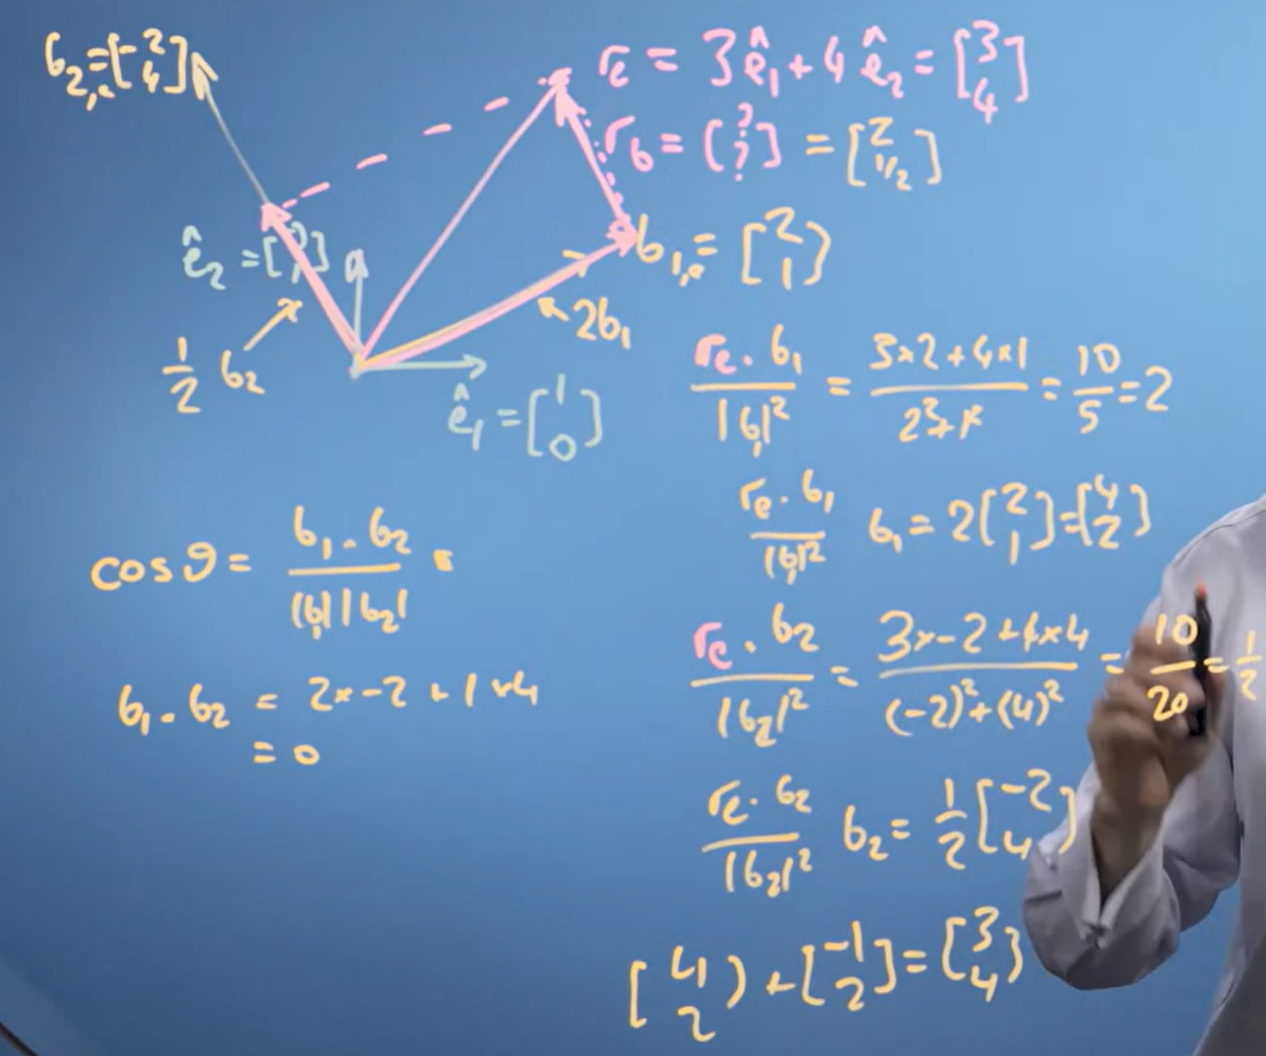 b₂,ₑ = [-2 4]
rₑ = 3ê₁ + 4ê₂ = [3 4]
r_b = [? ?] = [2 1/2]
ê₂ = [0 1]
b₁,ₑ = [2 1]
1/2 b₂
2b₁
ê₁ = [1 0]
rₑ · b₁ / |b₁|² = 3×2 + 4×1 / 2² + 1² = 10/5 = 2
rₑ · b₁ / |b₁|² b₁ = 2[2 1] = [4 2]
cos θ = b₁ · b₂ / |b₁| |b₂| =
b₁ · b₂ = 2×-2 + 1×4
= 0
rₑ · b₂ / |b₂|² = 3×-2 + 4×4 / (-2)² + (4)² = 10/20 = 1/2
rₑ · b₂ / |b₂|² b₂ = 1/2 [-2 4]
[4 2] + [-1 2] = [3 4]